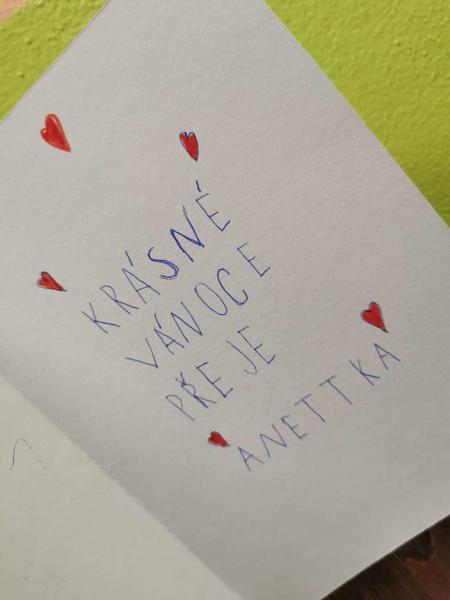 KRÁSNÉ
VÁNOCE
PŘEJE
ANETTKA